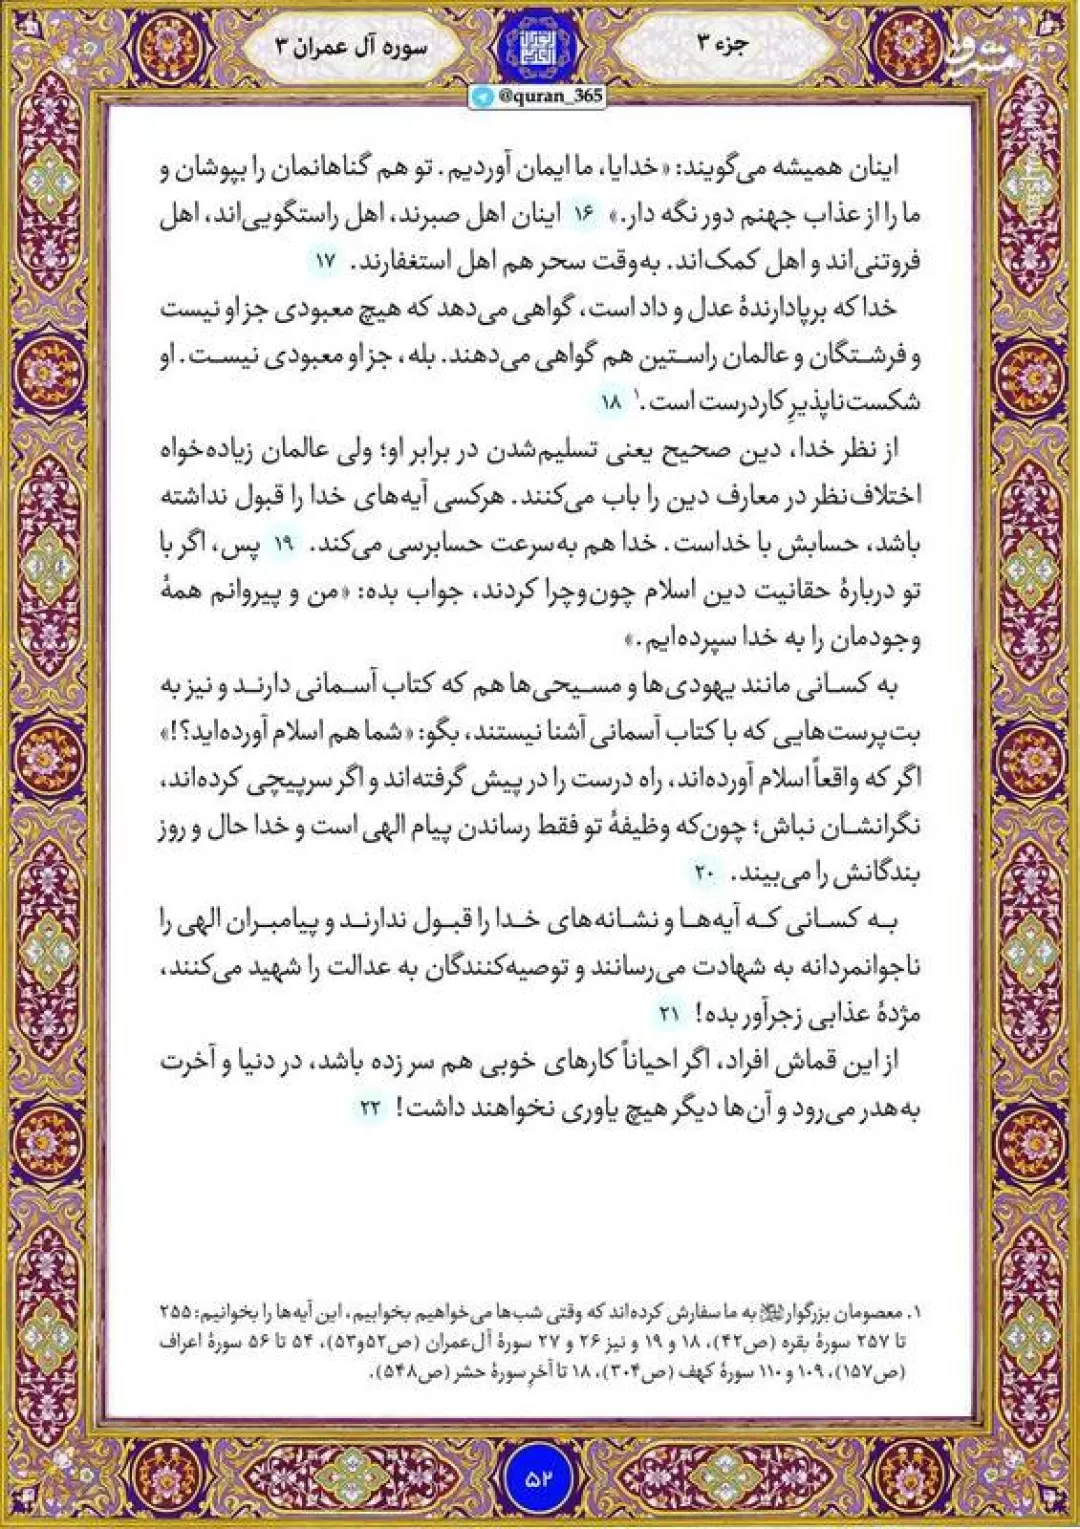 جزء ۳
سوره آل عمران ۳
مشرق
mashreghnews.ir
@quran_365
اینان همیشه می‌گویند: «خدایا، ما ایمان آوردیم. تو هم گناهانمان را بپوشان و
ما را از عذاب جهنم دور نگه دار.» ۱۶ اینان اهل صبرند، اهل راستگویی‌اند، اهل
فروتنی‌اند و اهل کمک‌اند. به‌وقت سحر هم اهل استغفارند. ۱۷
خدا که برپادارندهٔ عدل و داد است، گواهی می‌دهد که هیچ معبودی جز او نیست
و فرشتگان و عالمان راستین هم گواهی می‌دهند. بله، جز او معبودی نیست. او
شکست‌ناپذیرِ کاردرست است.۱ ۱۸
از نظر خدا، دین صحیح یعنی تسلیم‌شدن در برابر او؛ ولی عالمان زیاده‌خواه
اختلاف‌نظر در معارف دین را باب می‌کنند. هرکسی آیه‌های خدا را قبول نداشته
باشد، حسابش با خداست. خدا هم به‌سرعت حسابرسی می‌کند. ۱۹ پس، اگر با
تو دربارهٔ حقانیت دین اسلام چون‌وچرا کردند، جواب بده: «من و پیروانم همهٔ
وجودمان را به خدا سپرده‌ایم.»
به کسانی مانند یهودی‌ها و مسیحی‌ها هم که کتاب آسمانی دارند و نیز به
بت‌پرست‌هایی که با کتاب آسمانی آشنا نیستند، بگو: «شما هم اسلام آورده‌اید؟!»
اگر که واقعاً اسلام آورده‌اند، راه درست را در پیش گرفته‌اند و اگر سرپیچی کرده‌اند،
نگرانشان نباش؛ چون‌که وظیفهٔ تو فقط رساندن پیام الهی است و خدا حال و روز
بندگانش را می‌بیند. ۲۰
به کسانی که آیه‌ها و نشانه‌های خدا را قبول ندارند و پیامبران الهی را
ناجوانمردانه به شهادت می‌رسانند و توصیه‌کنندگان به عدالت را شهید می‌کنند،
مژدهٔ عذابی زجرآور بده! ۲۱
از این قماش افراد، اگر احیاناً کارهای خوبی هم سر زده باشد، در دنیا و آخرت
به‌هدر می‌رود و آن‌ها دیگر هیچ یاوری نخواهند داشت! ۲۲
۱. معصومان بزرگوار به ما سفارش کرده‌اند که وقتی شب‌ها می‌خواهیم بخوابیم، این آیه‌ها را بخوانیم: ۲۵۵
تا ۲۵۷ سورهٔ بقره (ص۴۲)، ۱۸ و ۱۹ و نیز ۲۶ و ۲۷ سورهٔ آل‌عمران (ص۵۲و۵۳)، ۵۴ تا ۵۶ سورهٔ اعراف
(ص۱۵۷)، ۱۰۹ و ۱۱۰ سورهٔ کهف (ص۳۰۴)، ۱۸ تا آخرِ سورهٔ حشر (ص۵۴۸).
۵۲